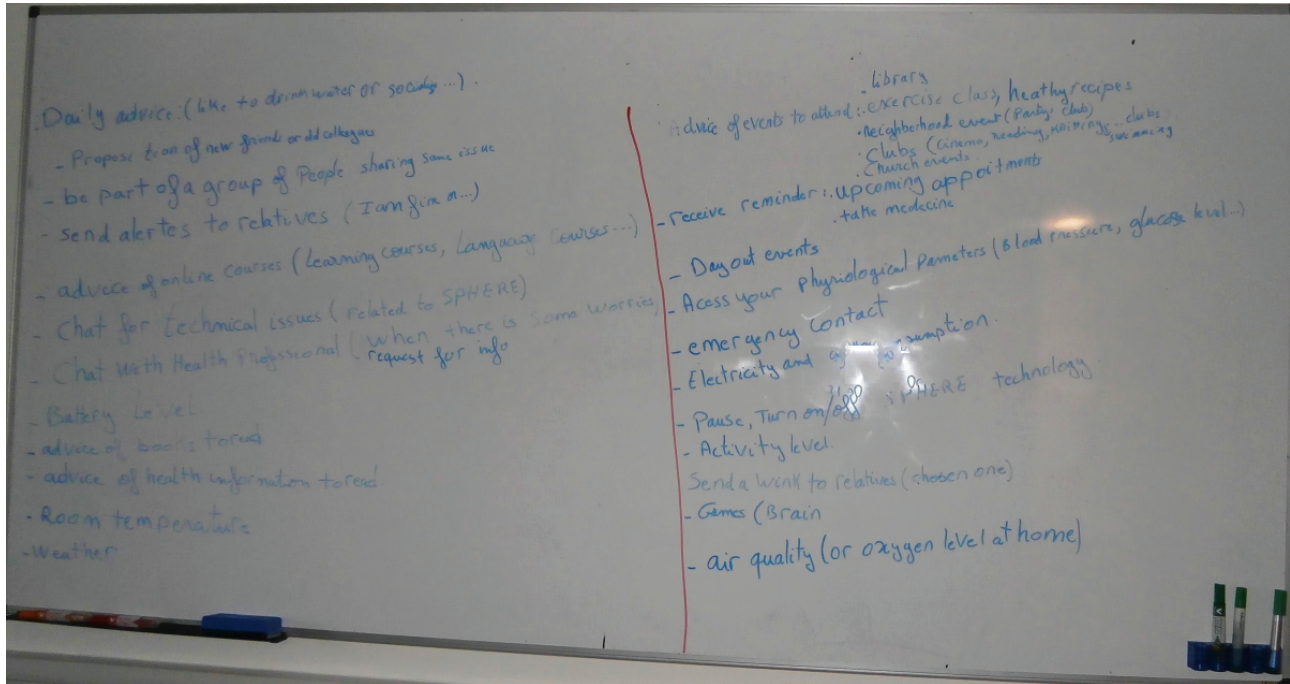 . Daily advice: (like to drink water or socialize ...).
- Proposetion of new friends or old colleagues
- be part of a group of People sharing same issue
- send alertes to relatives (I am fine or...)
- advice of online courses (Learning courses, Language courses...)
- Chat for technical issues (related to SPHERE)
- Chat with Health Professional (When there is some worries)
request for info
- Battery Level
- advice of books to read
- advice of health information to read
- Room temperature
- Weather
. library
Advice of events to attend: . exercise class, heathy recipes
. Neighberhood event (Party, club)
. Clubs (Cinema, reading, knitting, ... clubs
swimming
. Church events.
- receive reminder: . upcoming appoitments
. take medecine
- Day out events
- Acess your physiological parmeters (Blood Pressure, glucose level...)
- emergency contact
- Electricity and
- Pause, Turn on/off SPHERE technology.
- Activity level.
Send a wink to relatives (chosen one)
- Games (Brain
- air quality (or oxygen level at home)